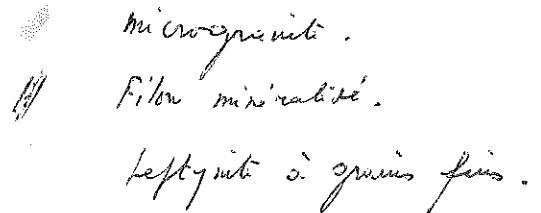 microgranite.
Filon minéralisé.
Leptynite à grains fins.